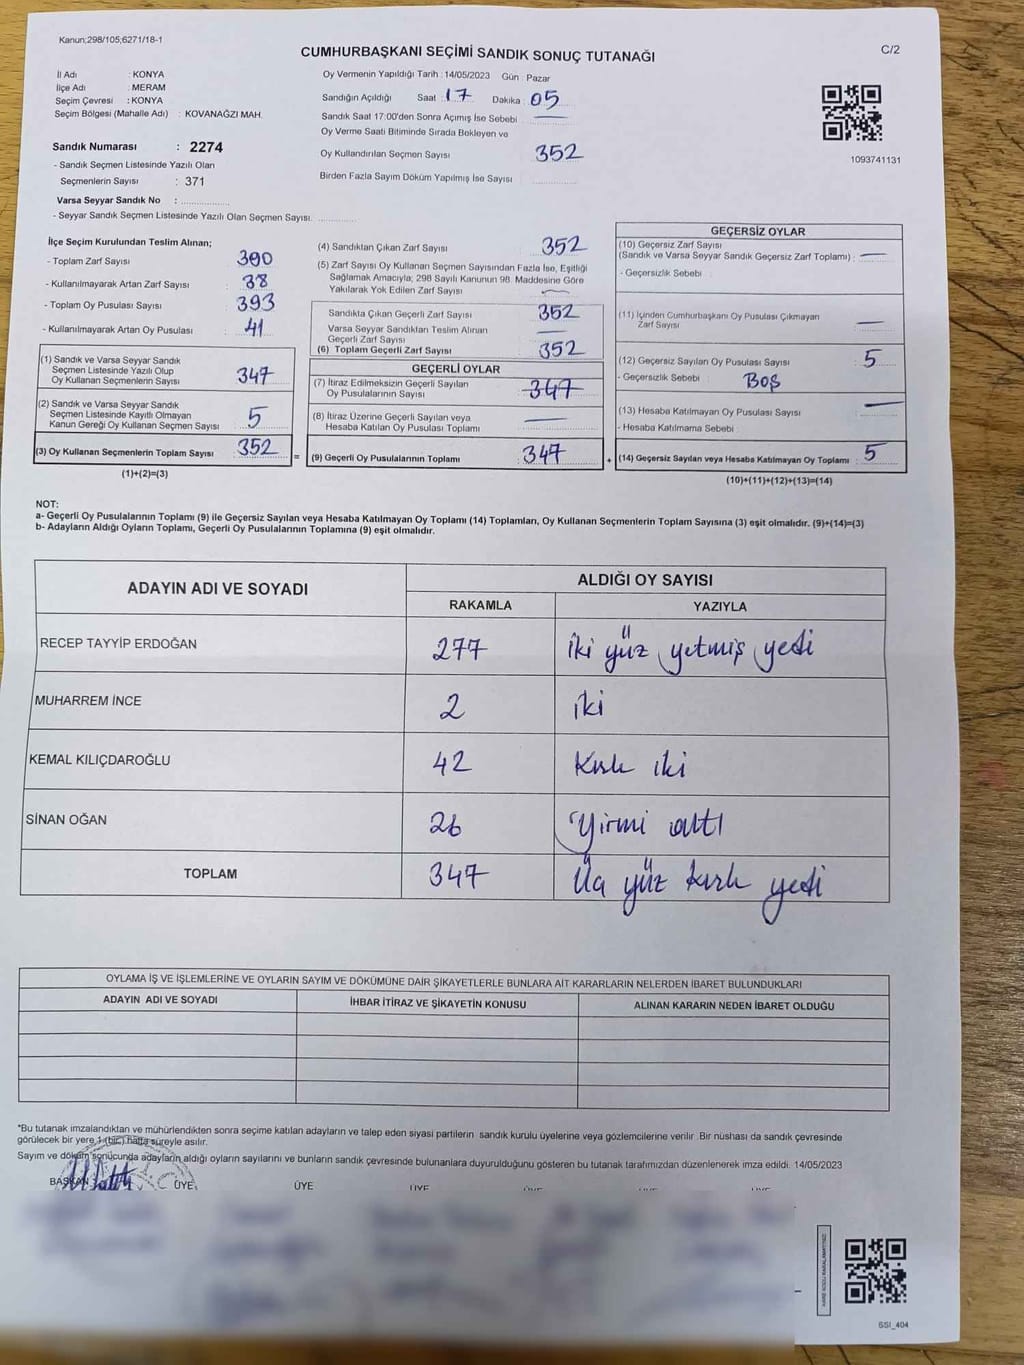 Kanun;298/105;6271/18-1
C/2
CUMHURBAŞKANI SEÇİMİ SANDIK SONUÇ TUTANAĞI
İl Adı : KONYA
İlçe Adı : MERAM
Seçim Çevresi : KONYA
Seçim Bölgesi (Mahalle Adı) : KOVANAĞZI MAH.
Sandık Numarası : 2274
- Sandık Seçmen Listesinde Yazılı Olan
Seçmenlerin Sayısı : 371
Varsa Seyyar Sandık No :
- Seyyar Sandık Seçmen Listesinde Yazılı Olan Seçmen Sayısı.
Oy Vermenin Yapıldığı Tarih : 14/05/2023 Gün : Pazar
Sandığın Açıldığı Saat : 17 Dakika : 05
Sandık Saat 17:00'den Sonra Açımış İse Sebebi
Oy Verme Saati Bitiminde Sırada Bekleyen ve
Oy Kullandırılan Seçmen Sayısı 352
Birden Fazla Sayım Döküm Yapılmış İse Sayısı
1093741131
İlçe Seçim Kurulundan Teslim Alınan;
- Toplam Zarf Sayısı 390
- Kullanılmayarak Artan Zarf Sayısı 38
- Toplam Oy Pusulası Sayısı 393
- Kullanılmayarak Artan Oy Pusulası 41
(1) Sandık ve Varsa Seyyar Sandık
Seçmen Listesinde Yazılı Olup
Oy Kullanan Seçmenlerin Sayısı 347
(2) Sandık ve Varsa Seyyar Sandık
Seçmen Listesinde Kayıtlı Olmayan
Kanun Gereği Oy Kullanan Seçmen Sayısı 5
(3) Oy Kullanan Seçmenlerin Toplam Sayısı 352
(1)+(2)=(3)
(4) Sandıktan Çıkan Zarf Sayısı 352
(5) Zarf Sayısı Oy Kullanan Seçmen Sayısından Fazla İse, Eşitliği
Sağlamak Amacıyla; 298 Sayılı Kanunun 98. Maddesine Göre
Yakılarak Yok Edilen Zarf Sayısı
Sandıkta Çıkan Geçerli Zarf Sayısı 352
Varsa Seyyar Sandıktan Teslim Alınan
Geçerli Zarf Sayısı
(6) Toplam Geçerli Zarf Sayısı 352
GEÇERLİ OYLAR
(7) İtiraz Edilmeksizin Geçerli Sayılan
Oy Pusulalarının Sayısı 347
(8) İtiraz Üzerine Geçerli Sayılan veya
Hesaba Katılan Oy Pusulası Toplamı
= (9) Geçerli Oy Pusulalarının Toplamı 347
GEÇERSİZ OYLAR
(10) Geçersiz Zarf Sayısı
(Sandık ve Varsa Seyyar Sandık Geçersiz Zarf Toplamı) :
- Geçersizlik Sebebi :
(11) İçinden Cumhurbaşkanı Oy Pusulası Çıkmayan
Zarf Sayısı
(12) Geçersiz Sayılan Oy Pusulası Sayısı 5
- Geçersizlik Sebebi : Boş
(13) Hesaba Katılmayan Oy Pusulası Sayısı
- Hesaba Katılmama Sebebi
+ (14) Geçersiz Sayılan veya Hesaba Katılmayan Oy Toplamı : 5
(10)+(11)+(12)+(13)=(14)
NOT:
a- Geçerli Oy Pusulalarının Toplamı (9) ile Geçersiz Sayılan veya Hesaba Katılmayan Oy Toplamı (14) Toplamları, Oy Kullanan Seçmenlerin Toplam Sayısına (3) eşit olmalıdır. (9)+(14)=(3)
b- Adayların Aldığı Oyların Toplamı, Geçerli Oy Pusulalarının Toplamına (9) eşit olmalıdır.
ADAYIN ADI VE SOYADI ALDIĞI OY SAYISI
RAKAMLA YAZIYLA
RECEP TAYYİP ERDOĞAN 277 iki yüz yetmiş yedi
MUHARREM İNCE 2 iki
KEMAL KILIÇDAROĞLU 42 Kırk iki
SİNAN OĞAN 26 Yirmi altı
TOPLAM 347 Üç yüz kırk yedi
OYLAMA İŞ VE İŞLEMLERİNE VE OYLARIN SAYIM VE DÖKÜMÜNE DAİR ŞİKAYETLERLE BUNLARA AİT KARARLARIN NELERDEN İBARET BULUNDUKLARI
ADAYIN ADI VE SOYADI İHBAR İTİRAZ VE ŞİKAYETİN KONUSU ALINAN KARARIN NEDEN İBARET OLDUĞU
*Bu tutanak imzalandıktan ve mühürlendikten sonra seçime katılan adayların ve talep eden siyasi partilerin sandık kurulu üyelerine veya gözlemcilerine verilir. Bir nüshası da sandık çevresinde
görülecek bir yere 1 (bir) hafta süreyle asılır.
Sayım ve döküm sonucunda adayların aldığı oyların sayılarını ve bunların sandık çevresinde bulunanlara duyurulduğunu gösteren bu tutanak tarafımızdan düzenlenerek imza edildi. 14/05/2023
BAŞKAN ÜYE ÜYE
SSI_404